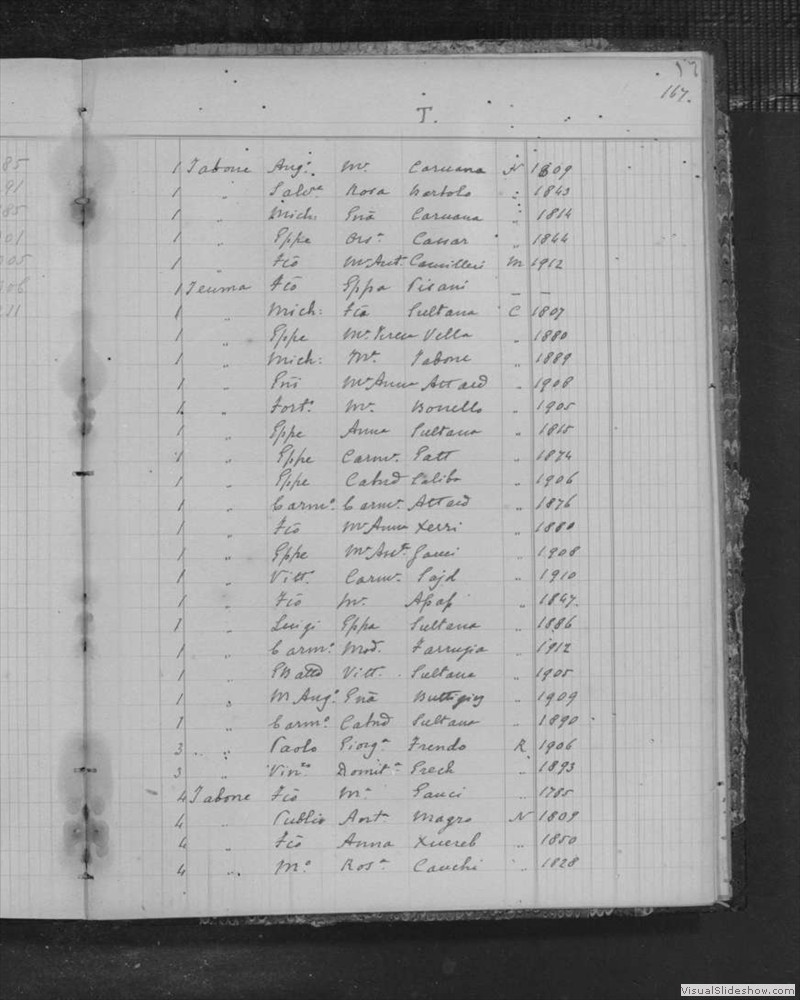 167.
T.
1 Tabone Ang.o M.a Caruana N 1809
1 " Salv.e Rosa Bartolo " 1843
1 " Mich: Gnã Caruana " 1814
1 " Gppe Ors.a Cassar " 1844
1 " Fcõ M.a Ant. Camilleri M 1912
1 Teuma Fcõ Gppa Pisani — —
1 " Mich: Fca Sultana C 1807
1 " Gppe M.a Teresa Vella " 1880
1 " Mich: M.a Tabone " 1889
1 " Gnõ M.a Anna Attard " 1908
1 " Fort.o M.a Bonello " 1905
1 " Gppe Anna Sultana " 1815
1 " Gppe Carm.a Gatt " 1874
1 " Gppe Catnd Saliba " 1906
1 " Carm.o Carm.a Attard " 1876
1 " Fcõ M.a Anna Xerri " 1880
1 " Gppe M.a Ant.a Gauci " 1908
1 " Vitt.o Carm.a Sajd " 1910
1 " Fcõ M.a Apap " 1847.
1 " Luigi Gppa Sultana " 1886
1 " Carm.o Mad. Farrugia " 1912
1 " GBatta Vitt. Sultana " 1905
1 " M. Ang.o Gnã Buttigieg " 1909
1 " Carm.o Catnd Sultana " 1890
3 " Paolo Giorg.a Frendo R 1906
3 " Vin.zo Domit.a Grech " 1893
4 Tabone Fcõ M.a Gauci " 1785
4 " Publio Ant. Magro N 1809
4 " Fcõ Anna Xuereb " 1850
4 " M.o Ros.a Cauchi " 1828
85
91
85
01
05
06
11
VisualSlideshow.com